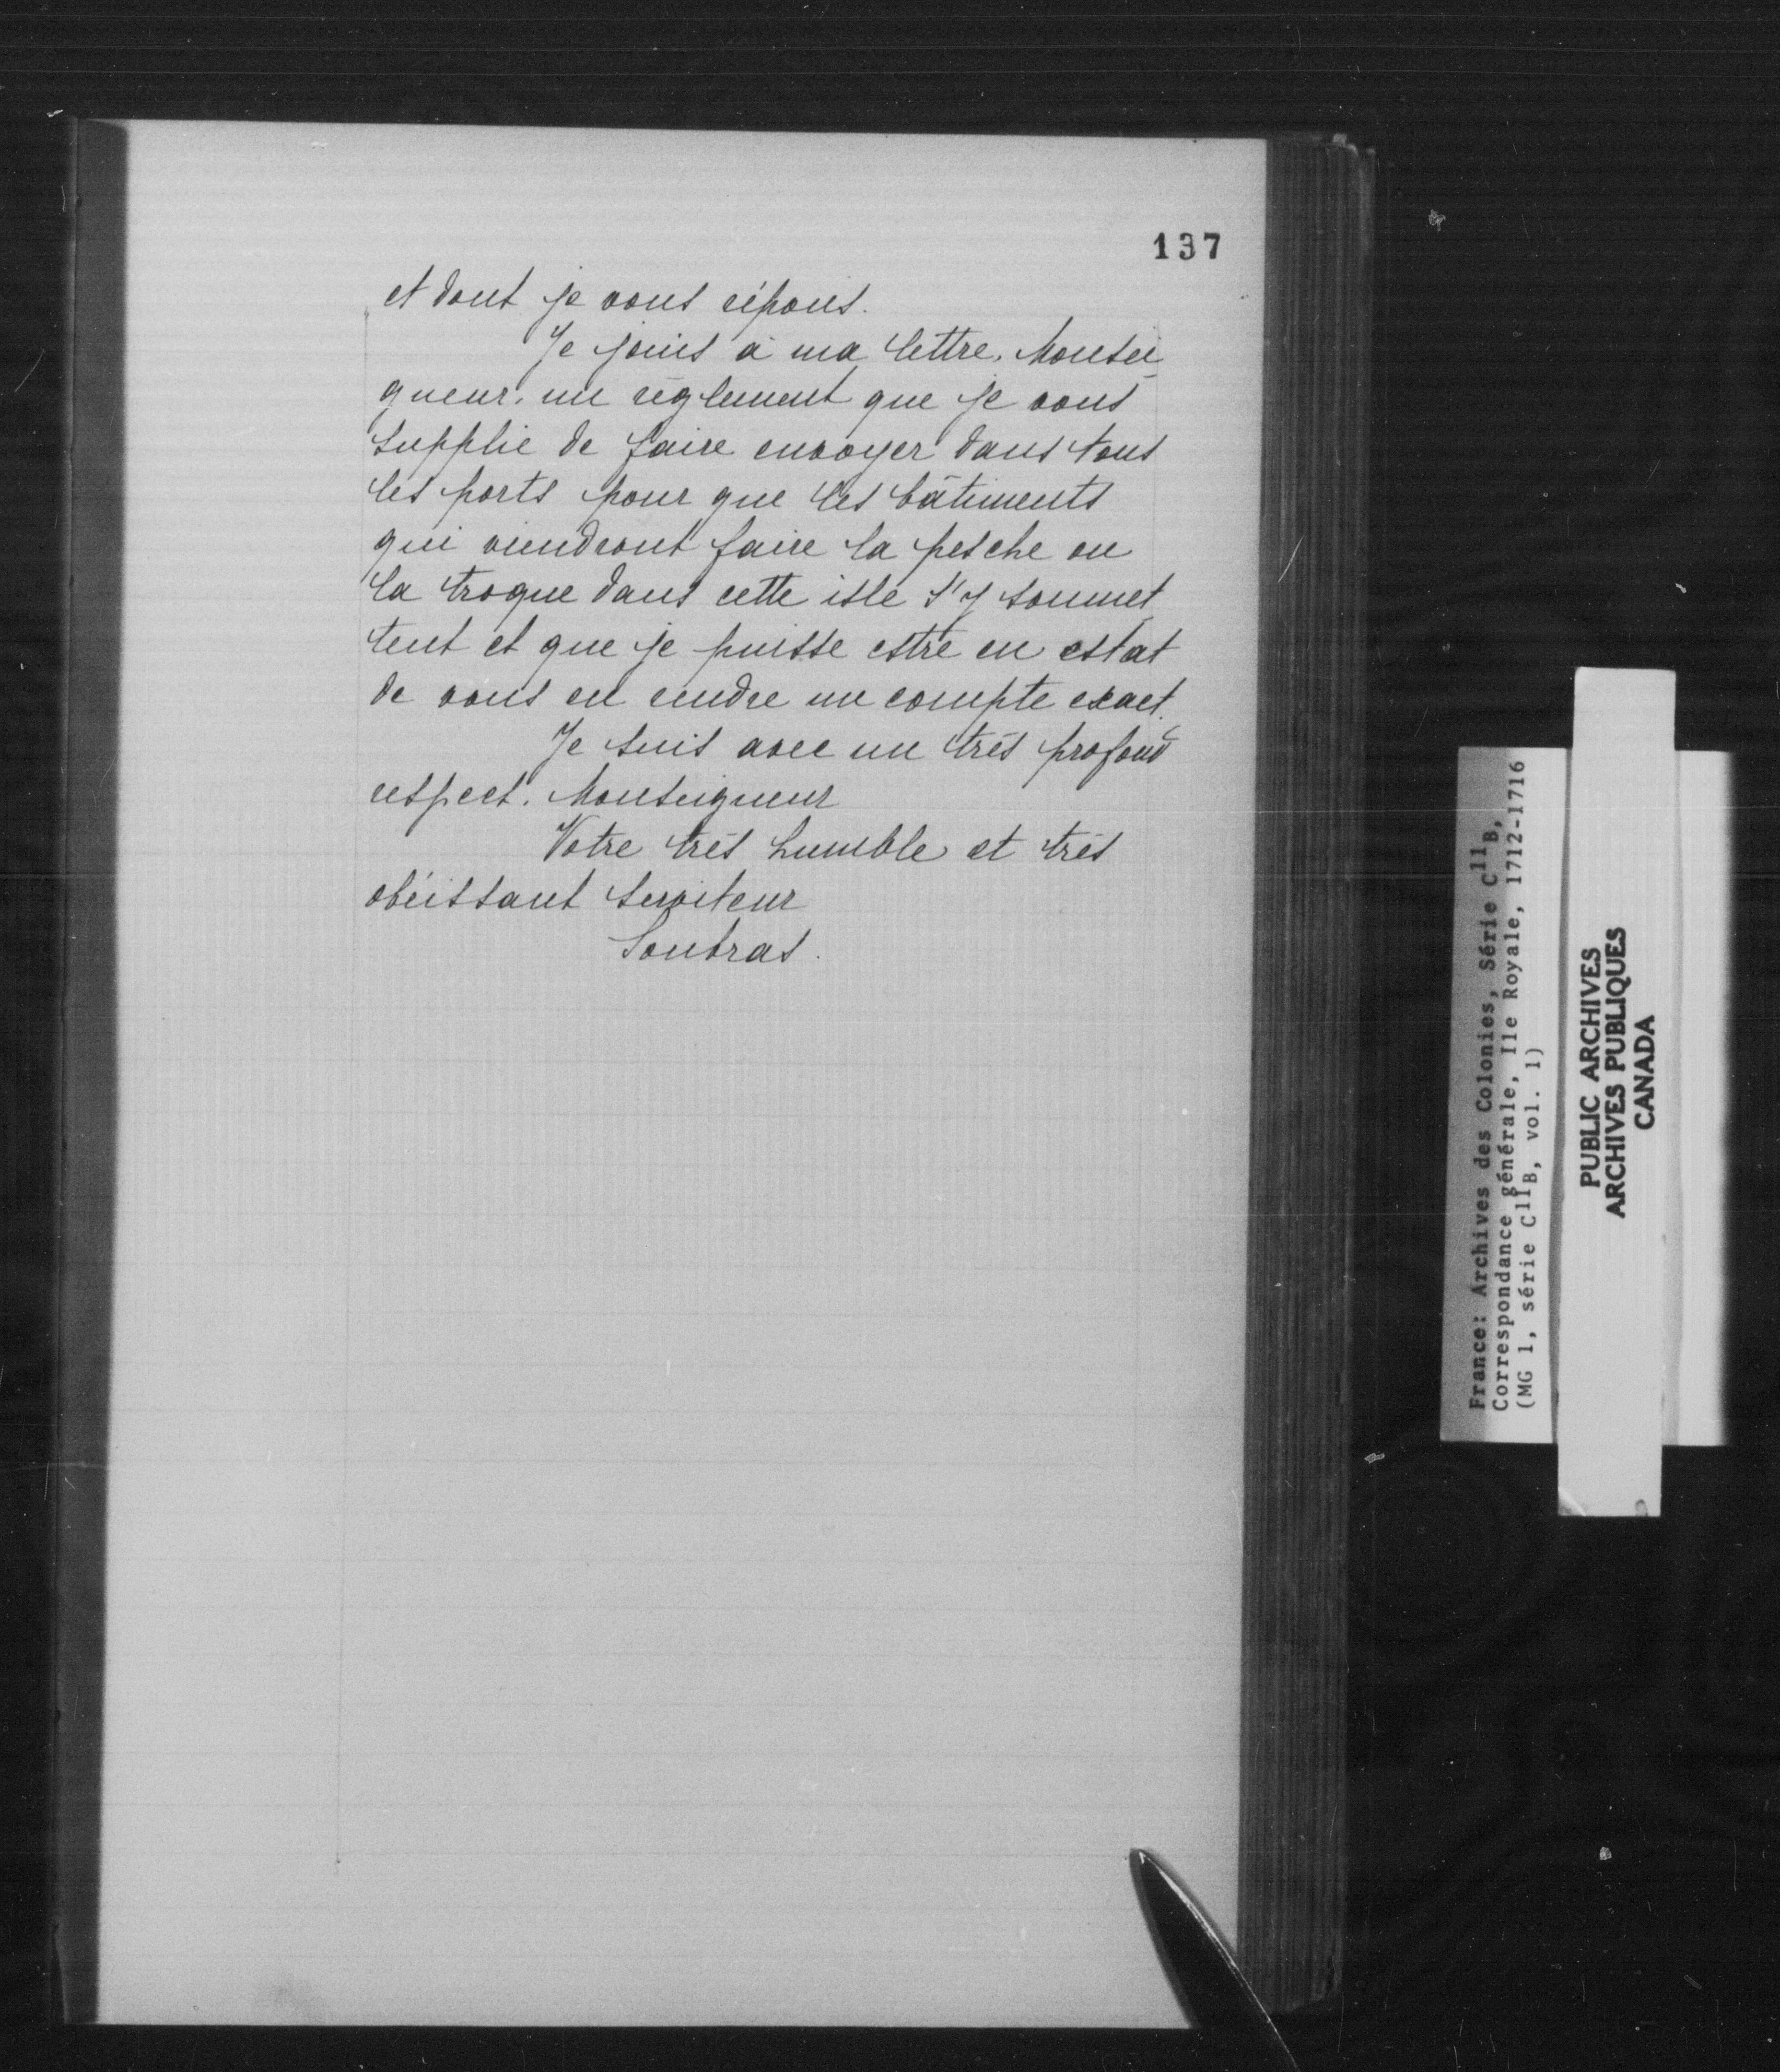 137
et dont je vous répons.
Je joins à ma lettre, Monsei-
gneur, un règlement que je vous
supplie de faire envoyer dans tous
les ports pour que les bâtiments
qui viendront faire la pesche ou
la troque dans cette isle s'y soumet-
tent et que je puisse estre en estat
de vous en rendre un compte exact.
Je suis avec un très profond
respect, Monseigneur
Votre très humble et très
obéissant serviteur
Soubras.
France: Archives des Colonies, Série C11B,
Correspondance générale, Ile Royale, 1712-1716
(MG 1, série C11B, vol. 1)
PUBLIC ARCHIVES
ARCHIVES PUBLIQUES
CANADA